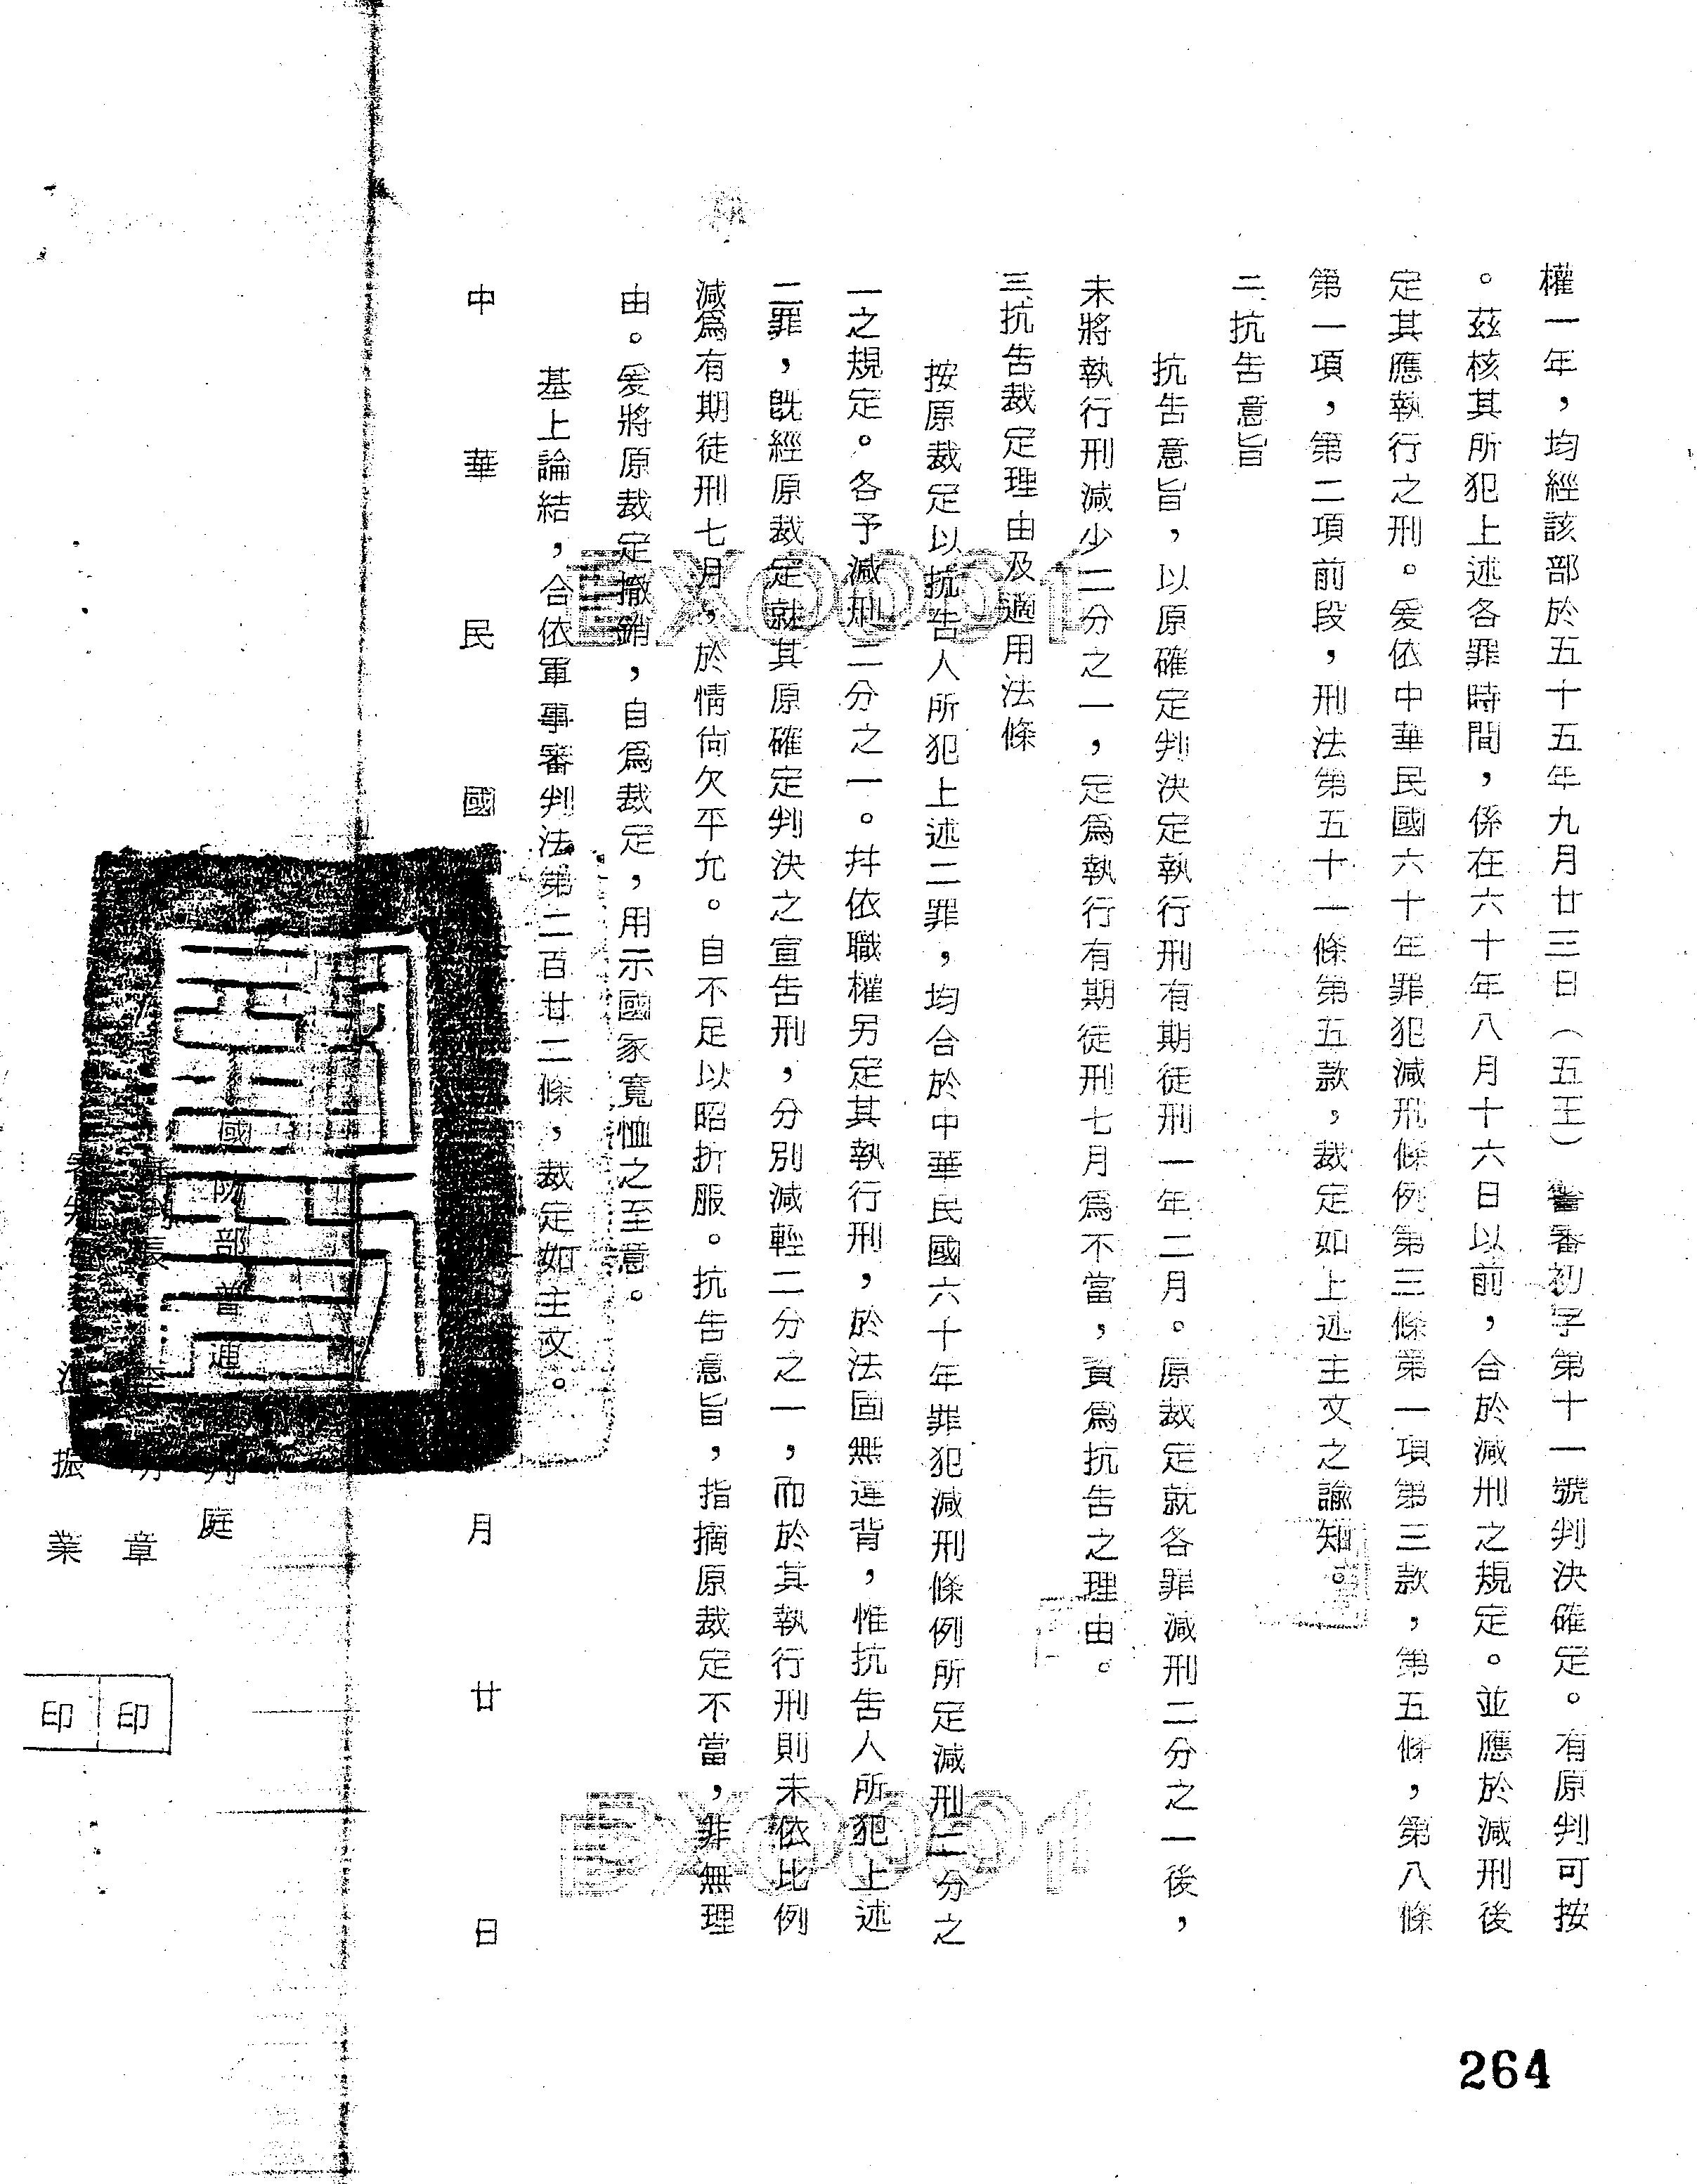 權一年，均經該部於五十五年九月廿三日（五五）警審初字第十一號判決確定。有原判可按
。茲核其所犯上述各罪時間，係在六十年八月十六日以前，合於減刑之規定。並應於減刑後
定其應執行之刑。爰依中華民國六十年罪犯減刑條例第三條第一項第三款，第五條，第八條
第一項，第二項前段，刑法第五十一條第五款，裁定如上述主文之諭知。
二、抗告意旨
抗告意旨，以原確定判決定執行刑有期徒刑一年二月。原裁定就各罪減刑二分之一後，
未將執行刑減少二分之一，定為執行有期徒刑七月為不當，資為抗告之理由。
三、抗告裁定理由及適用法條
按原裁定以抗告人所犯上述二罪，均合於中華民國六十年罪犯減刑條例所定減刑二分之
一之規定。各予減刑二分之一。幷依職權另定其執行刑，於法固無違背，惟抗告人所犯上述
二罪，既經原裁定就其原確定判決之宣告刑，分別減輕二分之一，而於其執行刑則未依比例
減為有期徒刑七月，於情尚欠平允。自不足以昭折服。抗告意旨，指摘原裁定不當，非無理
由。爰將原裁定撤銷，自為裁定，用示國家寬恤之至意。
基上論結，合依軍事審判法第二百廿二條，裁定如主文。
中華民國 月廿日
國防部普通 庭
長 李 明章 印
振業 印
BX0001
BX0001
264